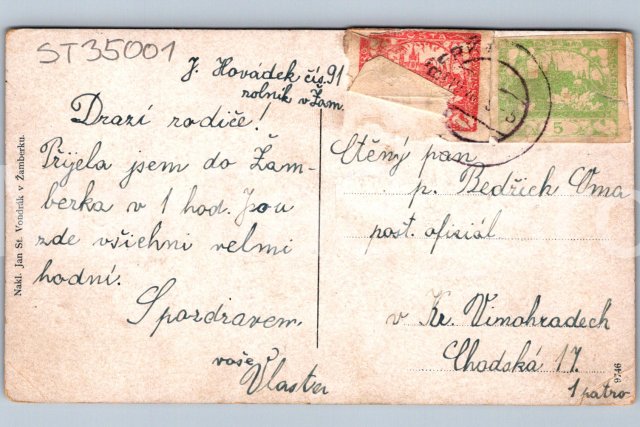 ST35001
J. Hovádek čís. 91
rolník v Žam.
Drazí rodiče!
Přijela jsem do Žam-
berka v 1 hod. Jsou
zde všichni velmi
hodní.
S pozdravem
vaše
Vlasta
Ctěný pan
p. Bedřich Oma
post. oficiál
v Kr. Vinohradech
Chodská 17.
1 patro
Nakl. Jan St. Vondrák v Žamberku.
9746
5